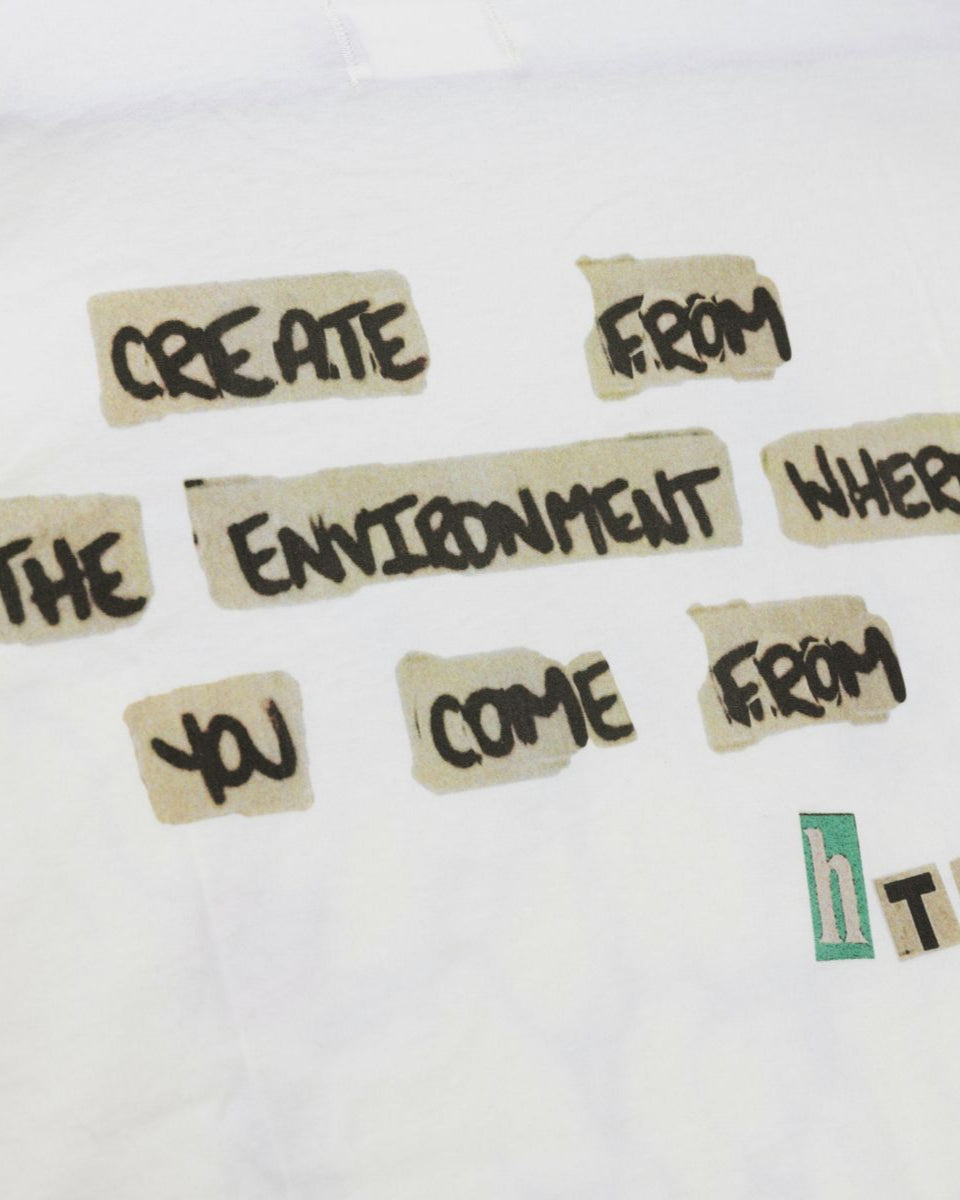 CREATE FROM
THE ENVIRONMENT WHERE
YOU COME FROM
hT